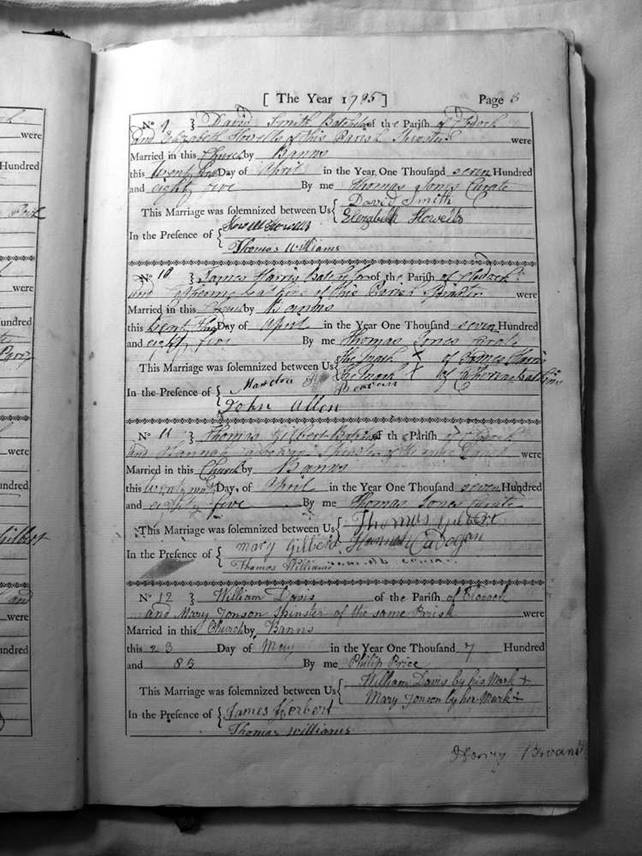 [ The Year 1785 ] Page 8
No 9 } David Smith Batchelor of the Parish of Clodock
and Elizabeth Howells of this Parish Spinster were
Married in this Church by Banns
this Day of April in the Year One Thousand seven Hundred
and eighty five By me Thomas Jones Curate
This Marriage was solemnized between Us { David Smith
Elizabeth Howells
In the Presence of {
Thomas Williams
No 10 } James Harris Batchelor of the Parish of Clodock
and of this Parish Spinster were
Married in this Church by Banns
this Day of April in the Year One Thousand seven Hundred
and eighty five By me Thomas Jones Curate
This Marriage was solemnized between Us { the mark X of James Harris
the mark X of
In the Presence of {
John Allen
No 11 } Thomas Gilbert of the Parish of Clodock
and Hannah Spinster of were
Married in this Church by Banns
this twenty Day of April in the Year One Thousand seven Hundred
and eighty five By me Thomas Jones Curate
This Marriage was solemnized between Us { Thomas Gilbert
Hannah Cadogan
In the Presence of { Mary Gilbert
Thomas Williams
No 12 } William Davis of the Parish of Clodock
and Mary Jonson Spinster of the same Parish were
Married in this Church by Banns
this 23 Day of May in the Year One Thousand 7 Hundred
and 85 By me Philip Price
This Marriage was solemnized between Us { William Davis by his Mark +
Mary Jonson by her Mark +
In the Presence of { James Herbert
Thomas Williams